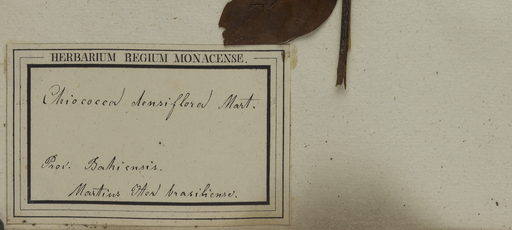 HERBARIUM REGIUM MONACENSE.
Chiococca densiflora Mart.
Prov. Bahiensis.
Martius Iter brasiliense.